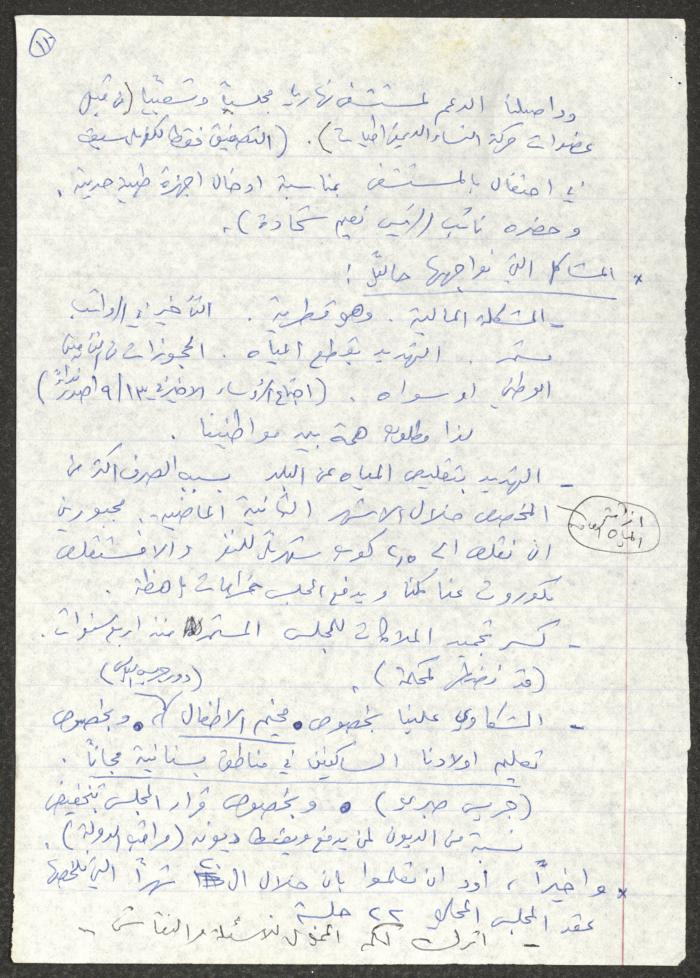 ١١
وواصلنا الدعم لمستشفى نهاريا مجلسياً وشعبياً (من قبل
عضوات حركة النساء الديمقراطيات). (التصفيق فقط
في احتفال بالمستشفى بمناسبة ادخال اجهزة طبية حديثة.
وحضره نائب الرئيس نعيم شحادة).
* المشاكل التي نواجهها حالياً:
- المشكلة المالية. وهو قطرية. التأخير في الرواتب
مستمر. التهديد بقطع المياه. الحجوزات من التأمين
الوطني او سواه. (اجتماع الرؤساء الاخير في ٩/١٣ اصدر نداء)
لذا مطلوب همة بين مواطنينا.
- التهديد بتقليص المياه عن البلد بسبب الصرف اكثر من
المخصص خلال الاشهر الثمانية الماضية. مجبورين
ازمة المياه العامة
ان نقلص الى ٢,٥ كوب شهرياً للنفر والا فستقلص
مكوروت عنا كلنا ويدفع المجلس غرامات باهظة.
- كسر تجميد الملاكات للمجلس المستمر منذ اربع سنوات.
(قد نضطر لمحكمة).
- الشكاوي علينا بخصوص مخيم الاطفال. وبخصوص
تعليم اولادنا الساكنين في مناطق بستانية مجاناً.
(جريس صبري). وبخصوص قرار المجلس بتخفيض
نسبة من الديون لمن يدفع ويقسط ديونه (مراقب الدولة).
* واخيراً، اود ان تعلموا بان خلال ال شهراً التي نلخصها
عقد المجلس المحلي ٢٢ جلسة
- اترك لكم المجال للاسئلة والنقاش -